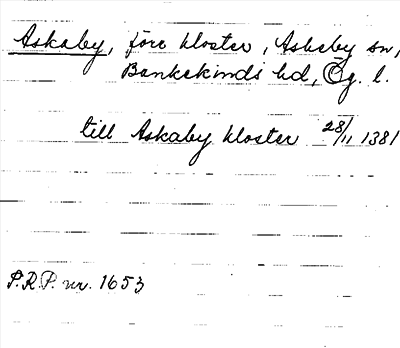 Askaby, före kloster, Askeby sn,
Bankekinds hd, Ög. l.
till Askaby kloster 28/11 1381
P.R.P. nr. 1653